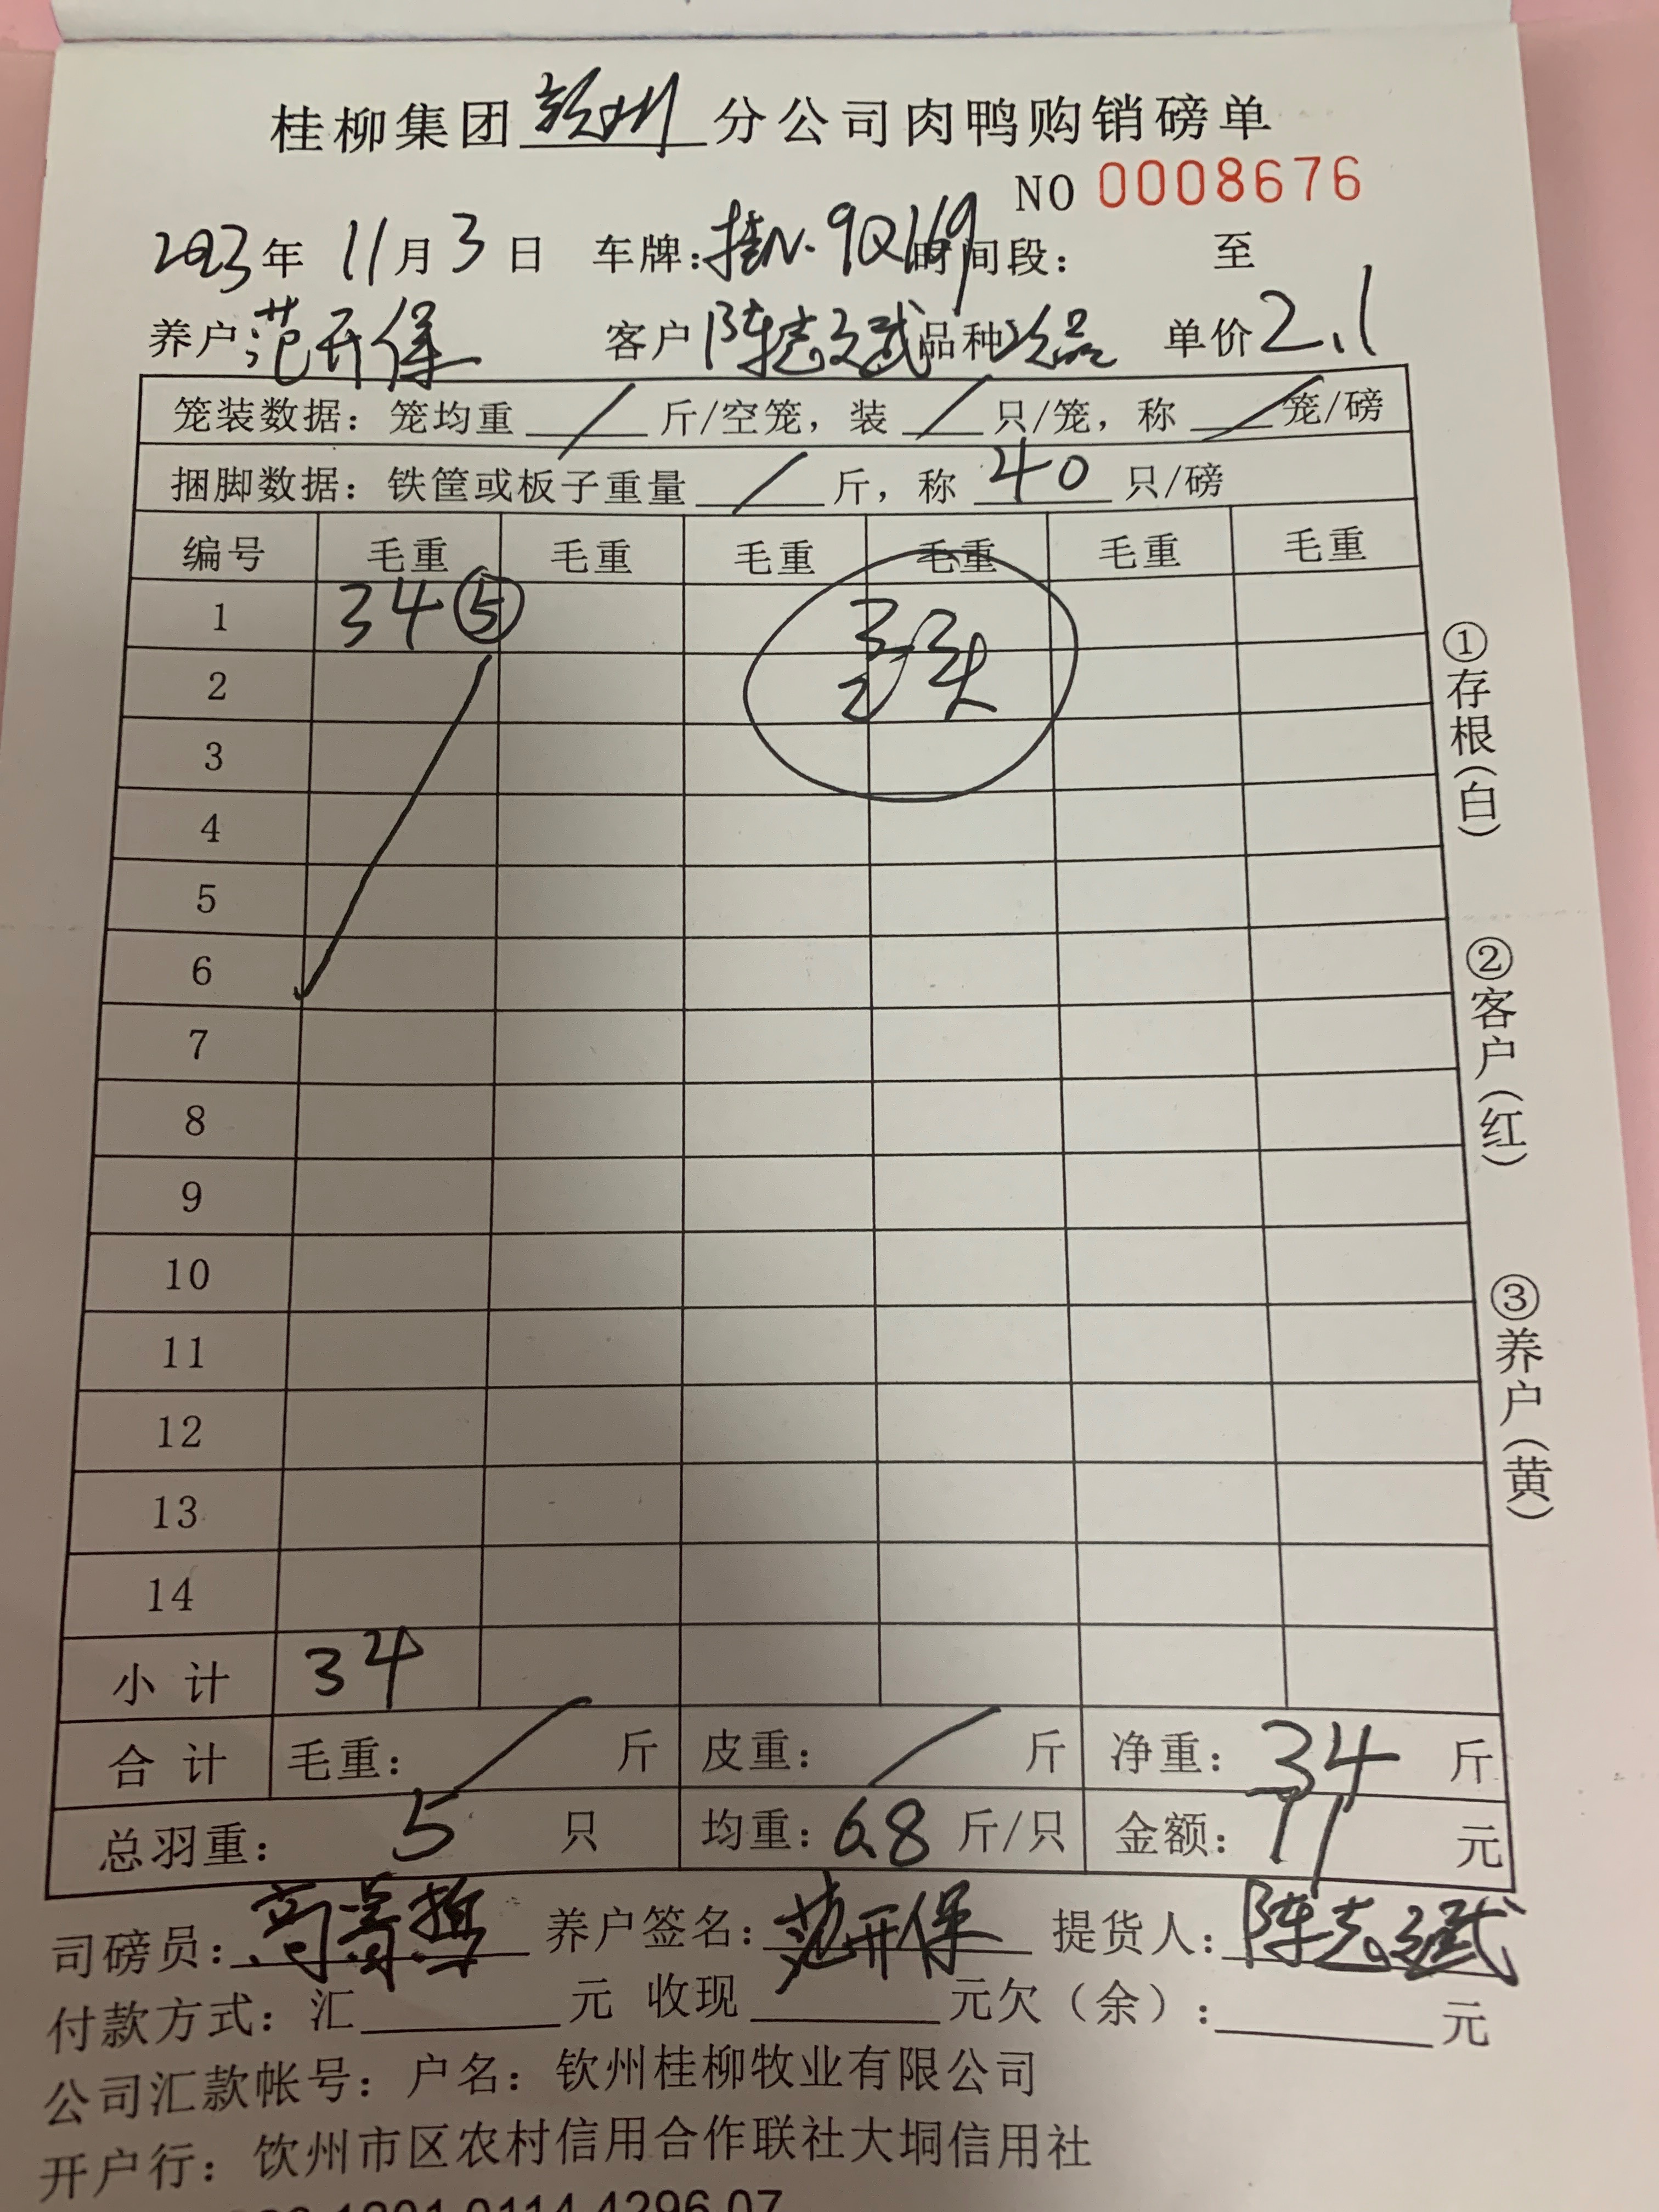 桂柳集团钦州分公司肉鸭购销磅单
NO 0008676
2023年 11月 3日 车牌：桂N·9Q169 时间段： 至
养户 范开保 客户 陈志斌 品种 次品 单价 2.1
笼装数据：笼均重 / 斤/空笼，装 / 只/笼，称 / 笼/磅
捆脚数据：铁筐或板子重量 / 斤，称 40 只/磅
编号 毛重 毛重 毛重 毛重 毛重 毛重
1 34 ⑤
2
3
4
5
6
7
8
9
10
11
12
13
14
小计 34
合计 毛重： / 斤 皮重： / 斤 净重：34 斤
总羽重： 5 只 均重：6.8 斤/只 金额：71 元
司磅员： 养户签名：范开保 提货人：陈志斌
付款方式：汇 元 收现 元欠（余）： 元
公司汇款帐号：户名：钦州桂柳牧业有限公司
开户行：钦州市区农村信用合作联社大垌信用社
1201 0114 4296 07
①存根（白）
②客户（红）
③养户（黄）